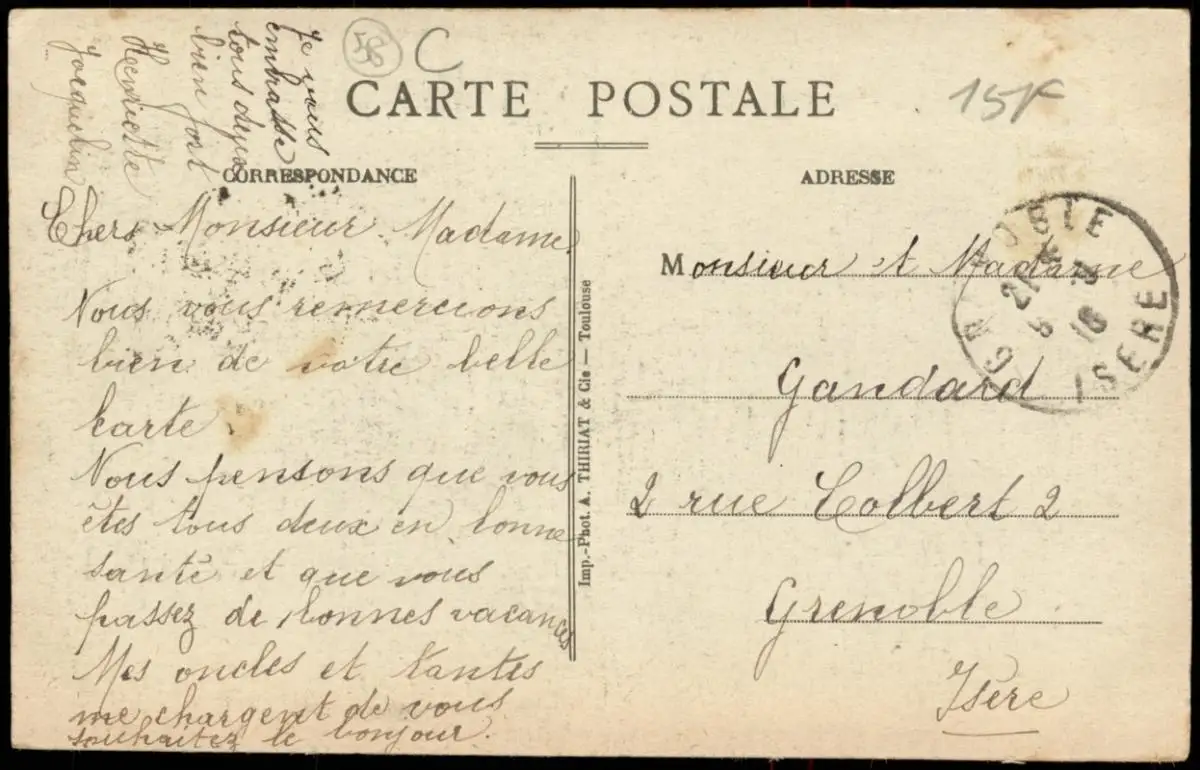 58 C
15F
CARTE POSTALE
CORRESPONDANCE
ADRESSE
Chers Monsieur. Madame
Nous vous remercions
bien de votre belle
Carte.
Nous pensons que vous
êtes tous deux en bonne
santé et que vous
passez de bonnes vacances
Mes oncles et tantes
me chargent de vous
souhaitez le bonjour.
Je vous
embrasse
tous deux
bien fort
Henriette
Jocquelin
Imp.-Phot. A. THIRIAT & Cie — Toulouse
Monsieur et Madame
Gandard
2 rue Colbert 2
Grenoble
Isère
GRENOBLE
8 16
ISERE